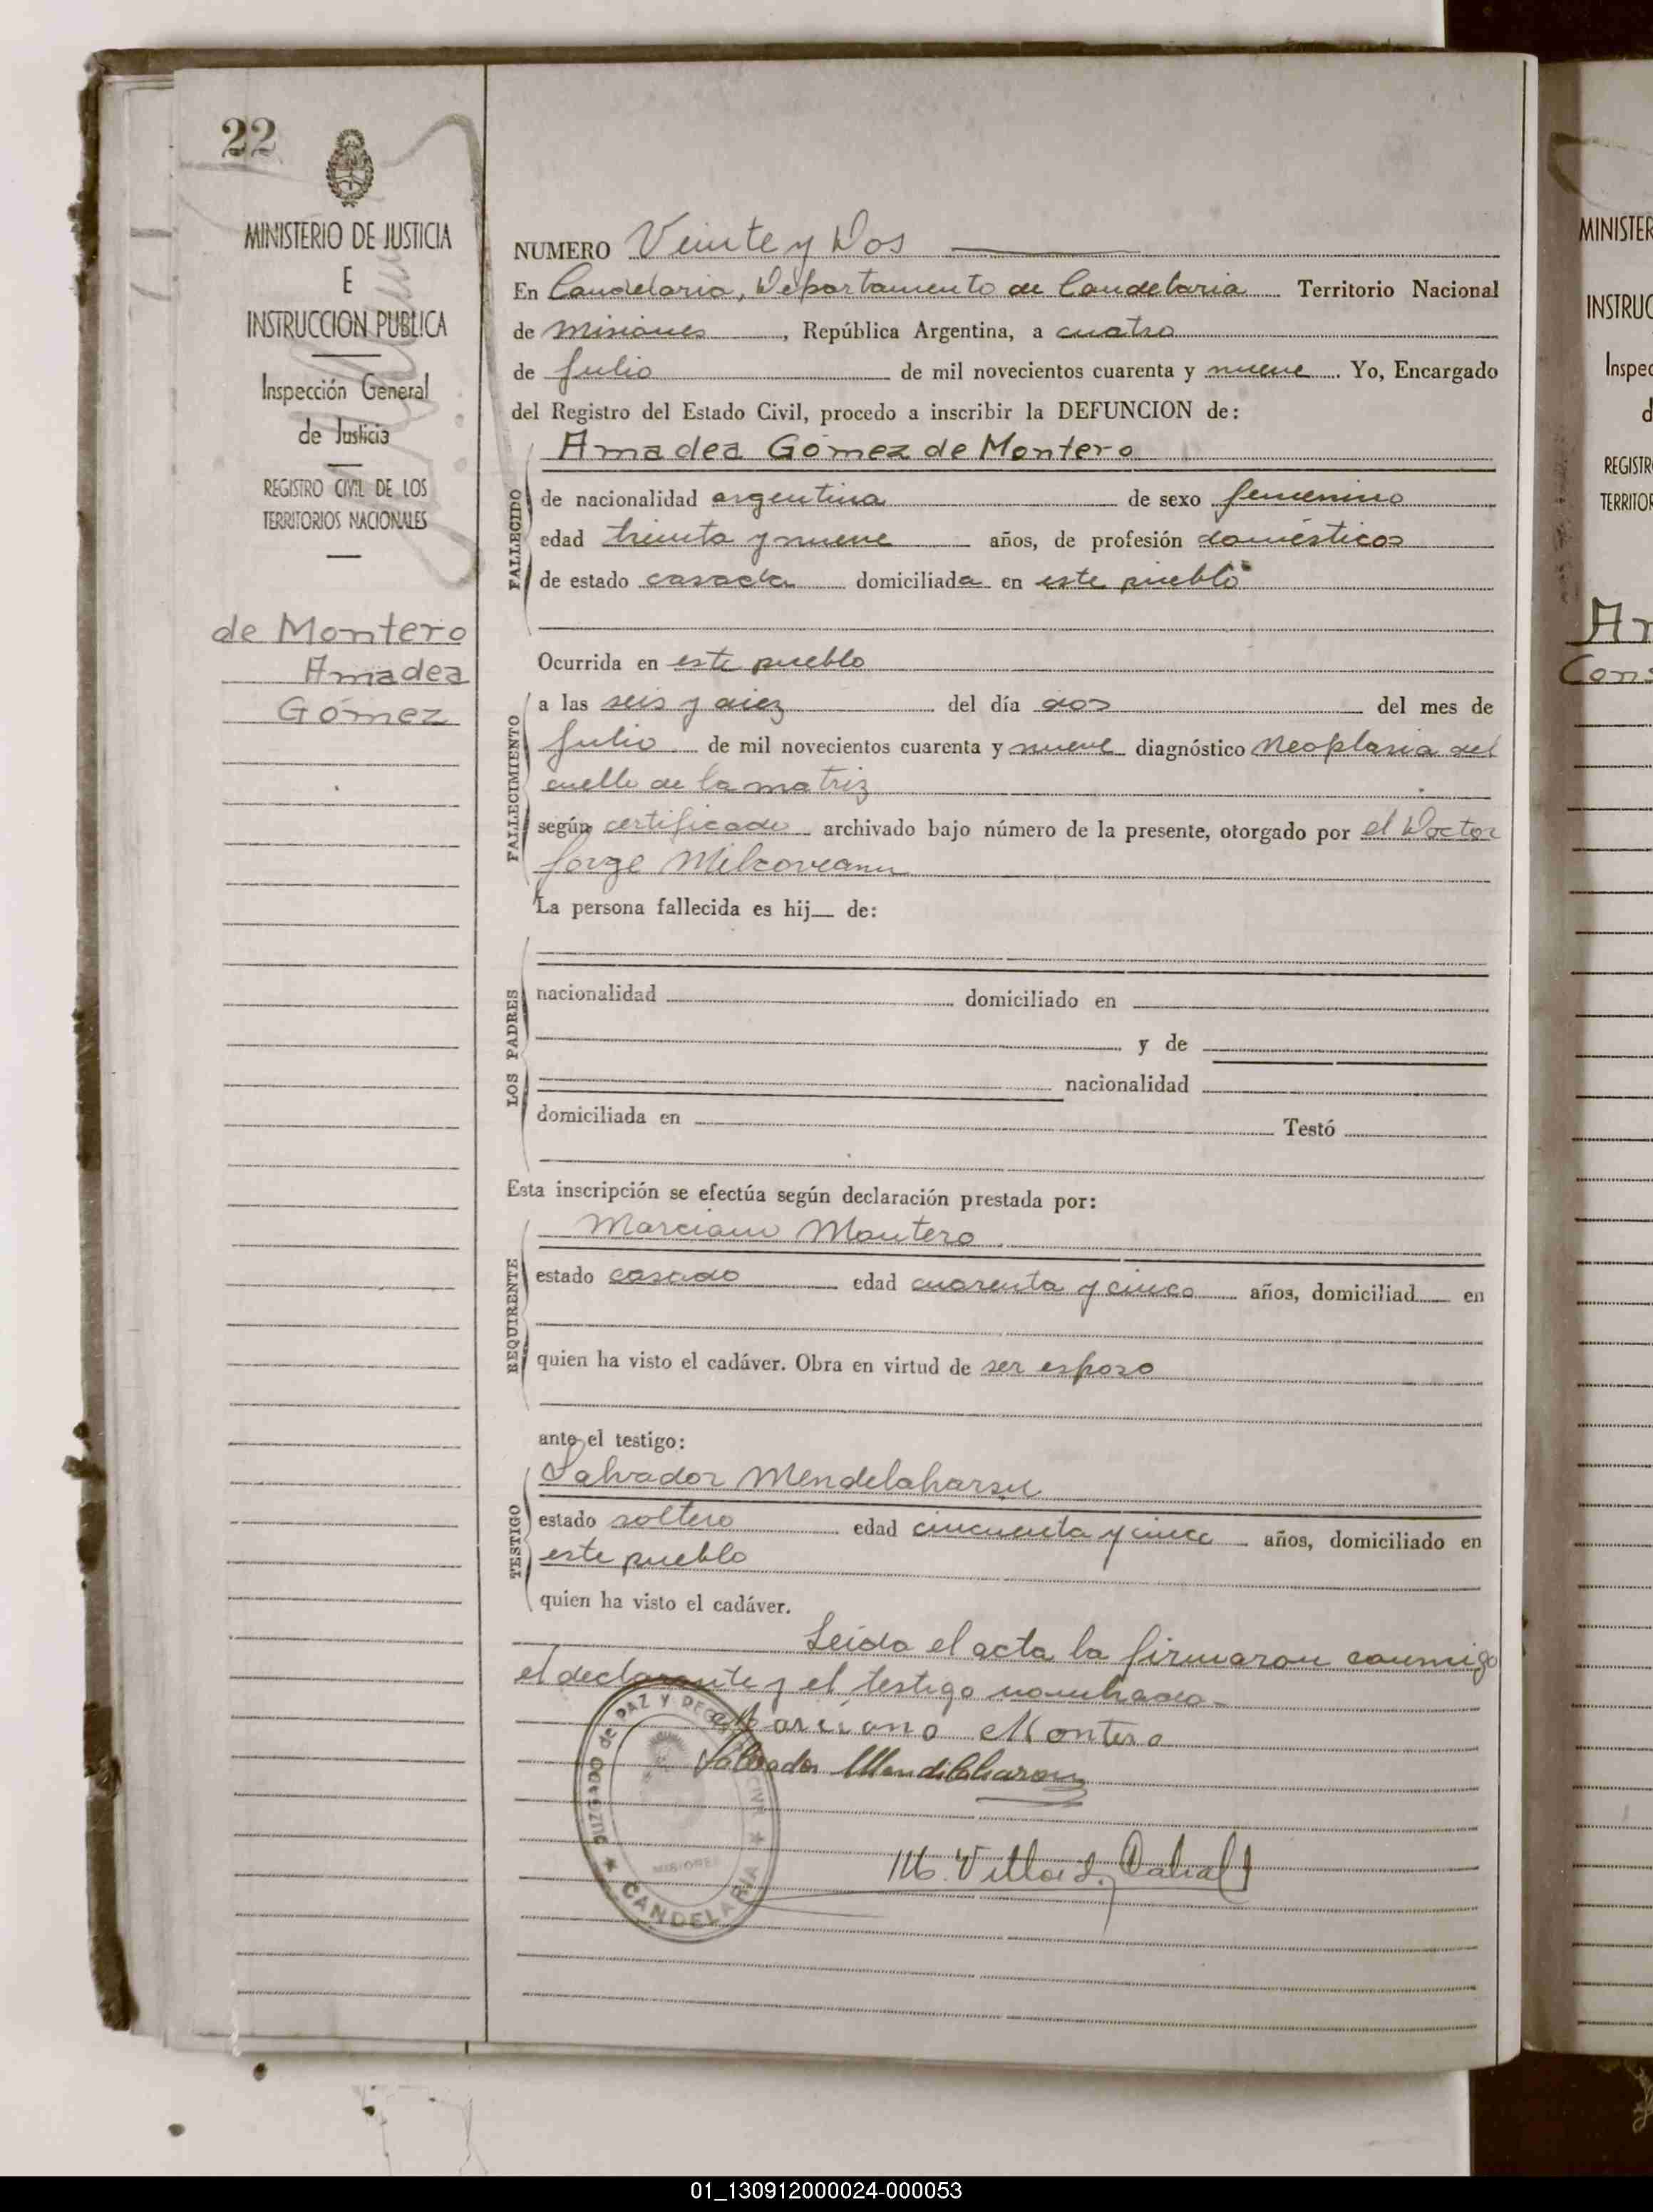 22
MINISTERIO DE JUSTICIA
E
INSTRUCCION PUBLICA
Inspección General
de Justicia
REGISTRO CIVIL DE LOS
TERRITORIOS NACIONALES
de Montero
Amadea
Gómez
NUMERO Veinte y Dos
En Candelaria, Departamento de Candelaria Territorio Nacional
de Misiones, República Argentina, a cuatro
de Julio de mil novecientos cuarenta y nueve. Yo, Encargado
del Registro del Estado Civil, procedo a inscribir la DEFUNCION de:
Amadea Gómez de Montero
FALLECIDO
de nacionalidad argentina de sexo femenino
edad treinta y nueve años, de profesión domésticos
de estado casada domiciliada en este pueblo
Ocurrida en este pueblo
FALLECIMIENTO
a las seis y diez del día dos del mes de
Julio de mil novecientos cuarenta y nueve diagnóstico Neoplasia del
cuello de la matriz
según certificado archivado bajo número de la presente, otorgado por el Doctor
Jorge Milcoveanu
La persona fallecida es hij__ de:
LOS PADRES
nacionalidad domiciliado en
y de
nacionalidad
domiciliada en Testó
Esta inscripción se efectúa según declaración prestada por:
Marciano Montero
REQUIRENTE
estado casado edad cuarenta y cinco años, domiciliad en
quien ha visto el cadáver. Obra en virtud de ser esposo
ante el testigo:
Salvador Mendelaharsu
TESTIGO
estado soltero edad cincuenta y cinco años, domiciliado en
este pueblo
quien ha visto el cadáver.
Leida el acta la firmaron conmigo
el declarante y el testigo nombrado.-
Marciano Montero
Salvador
JUZGADO de PAZ Y CIVIL
MISIONES
CANDELARIA
M. Cabral
MINISTER
INSTRUC
Inspec
d
REGISTR
TERRITOR
Ar
Con
01_130912000024-000053